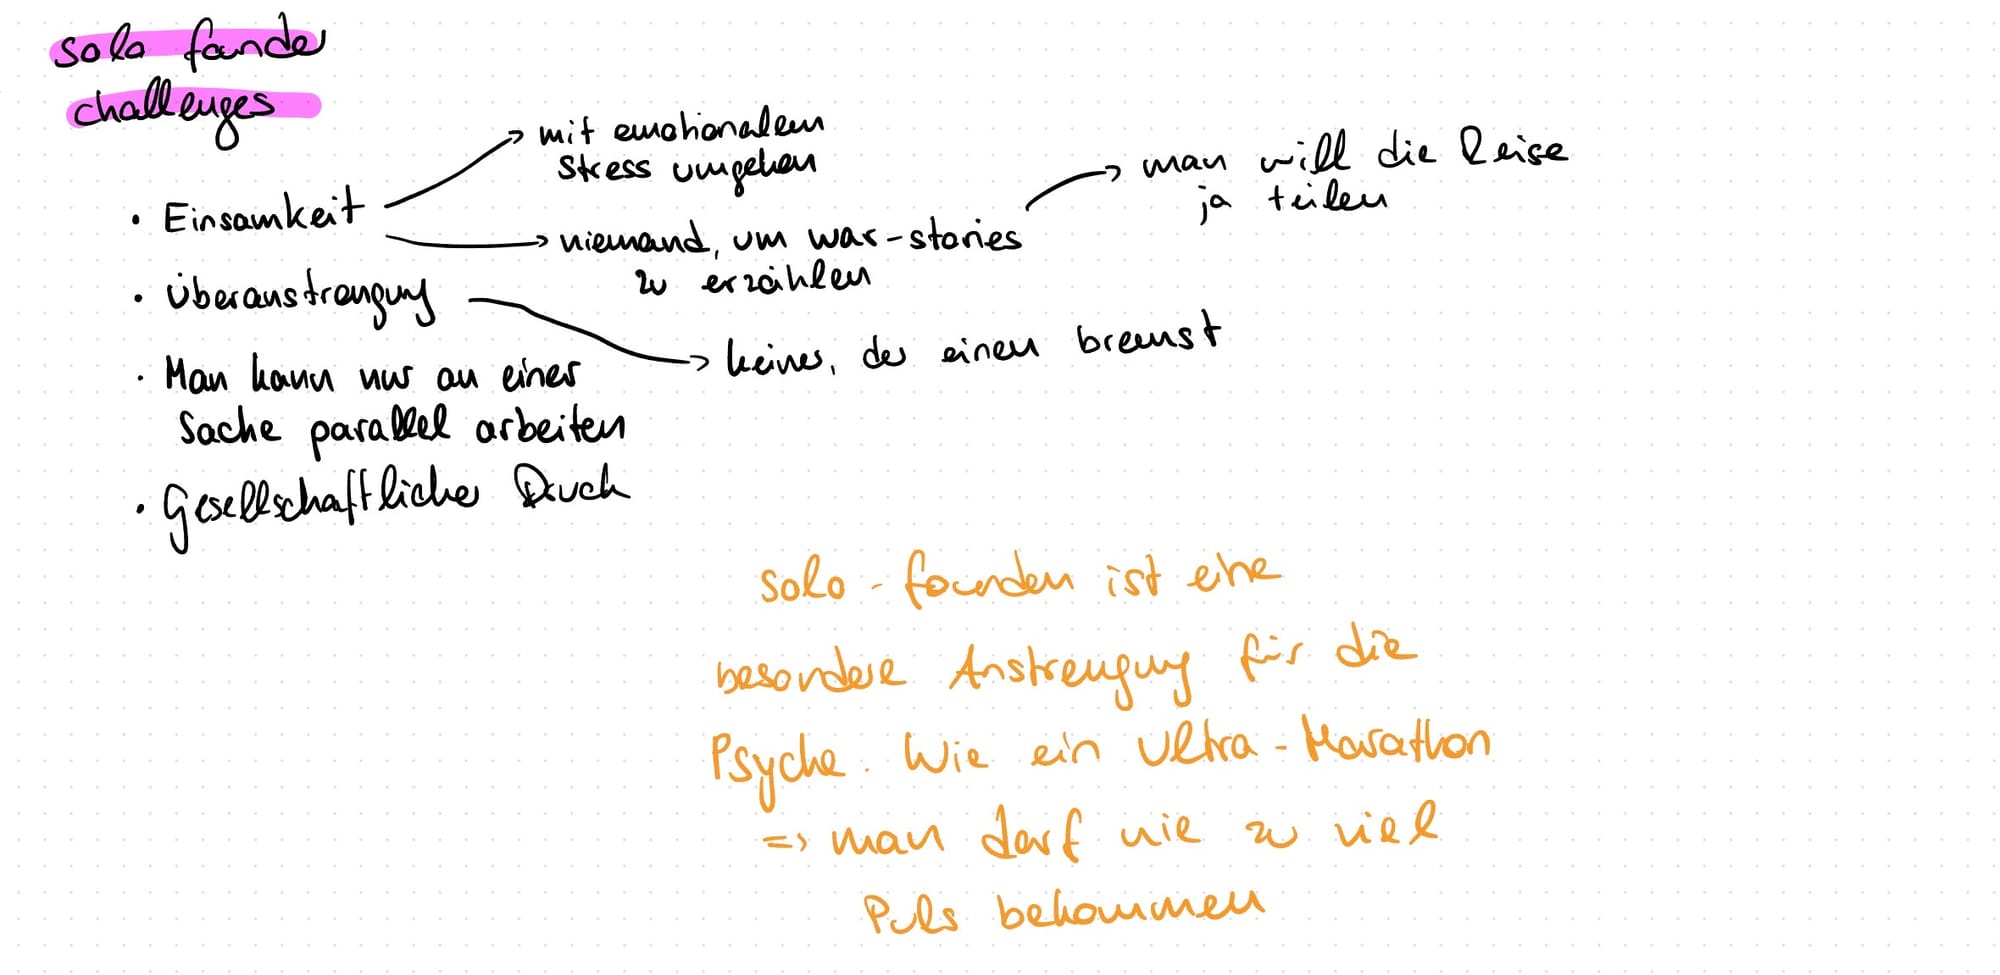 solo founder
challenges
• Einsamkeit
→ mit emotionalem
Stress umgehen
→ niemand, um war-stories
zu erzählen
→ man will die Reise
ja teilen
• Überanstrengung
→ keiner, der einen bremst
• Man kann nur an einer
Sache parallel arbeiten
• Gesellschaftlicher Druck
solo - founden ist eine
besondere Anstrengung für die
Psyche. Wie ein Ultra - Marathon
=> man darf nie zu viel
Puls bekommen